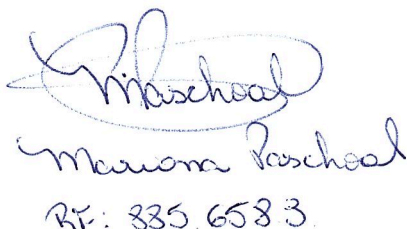 MPaschoal
Mariana Paschoal
RF: 885.658.3